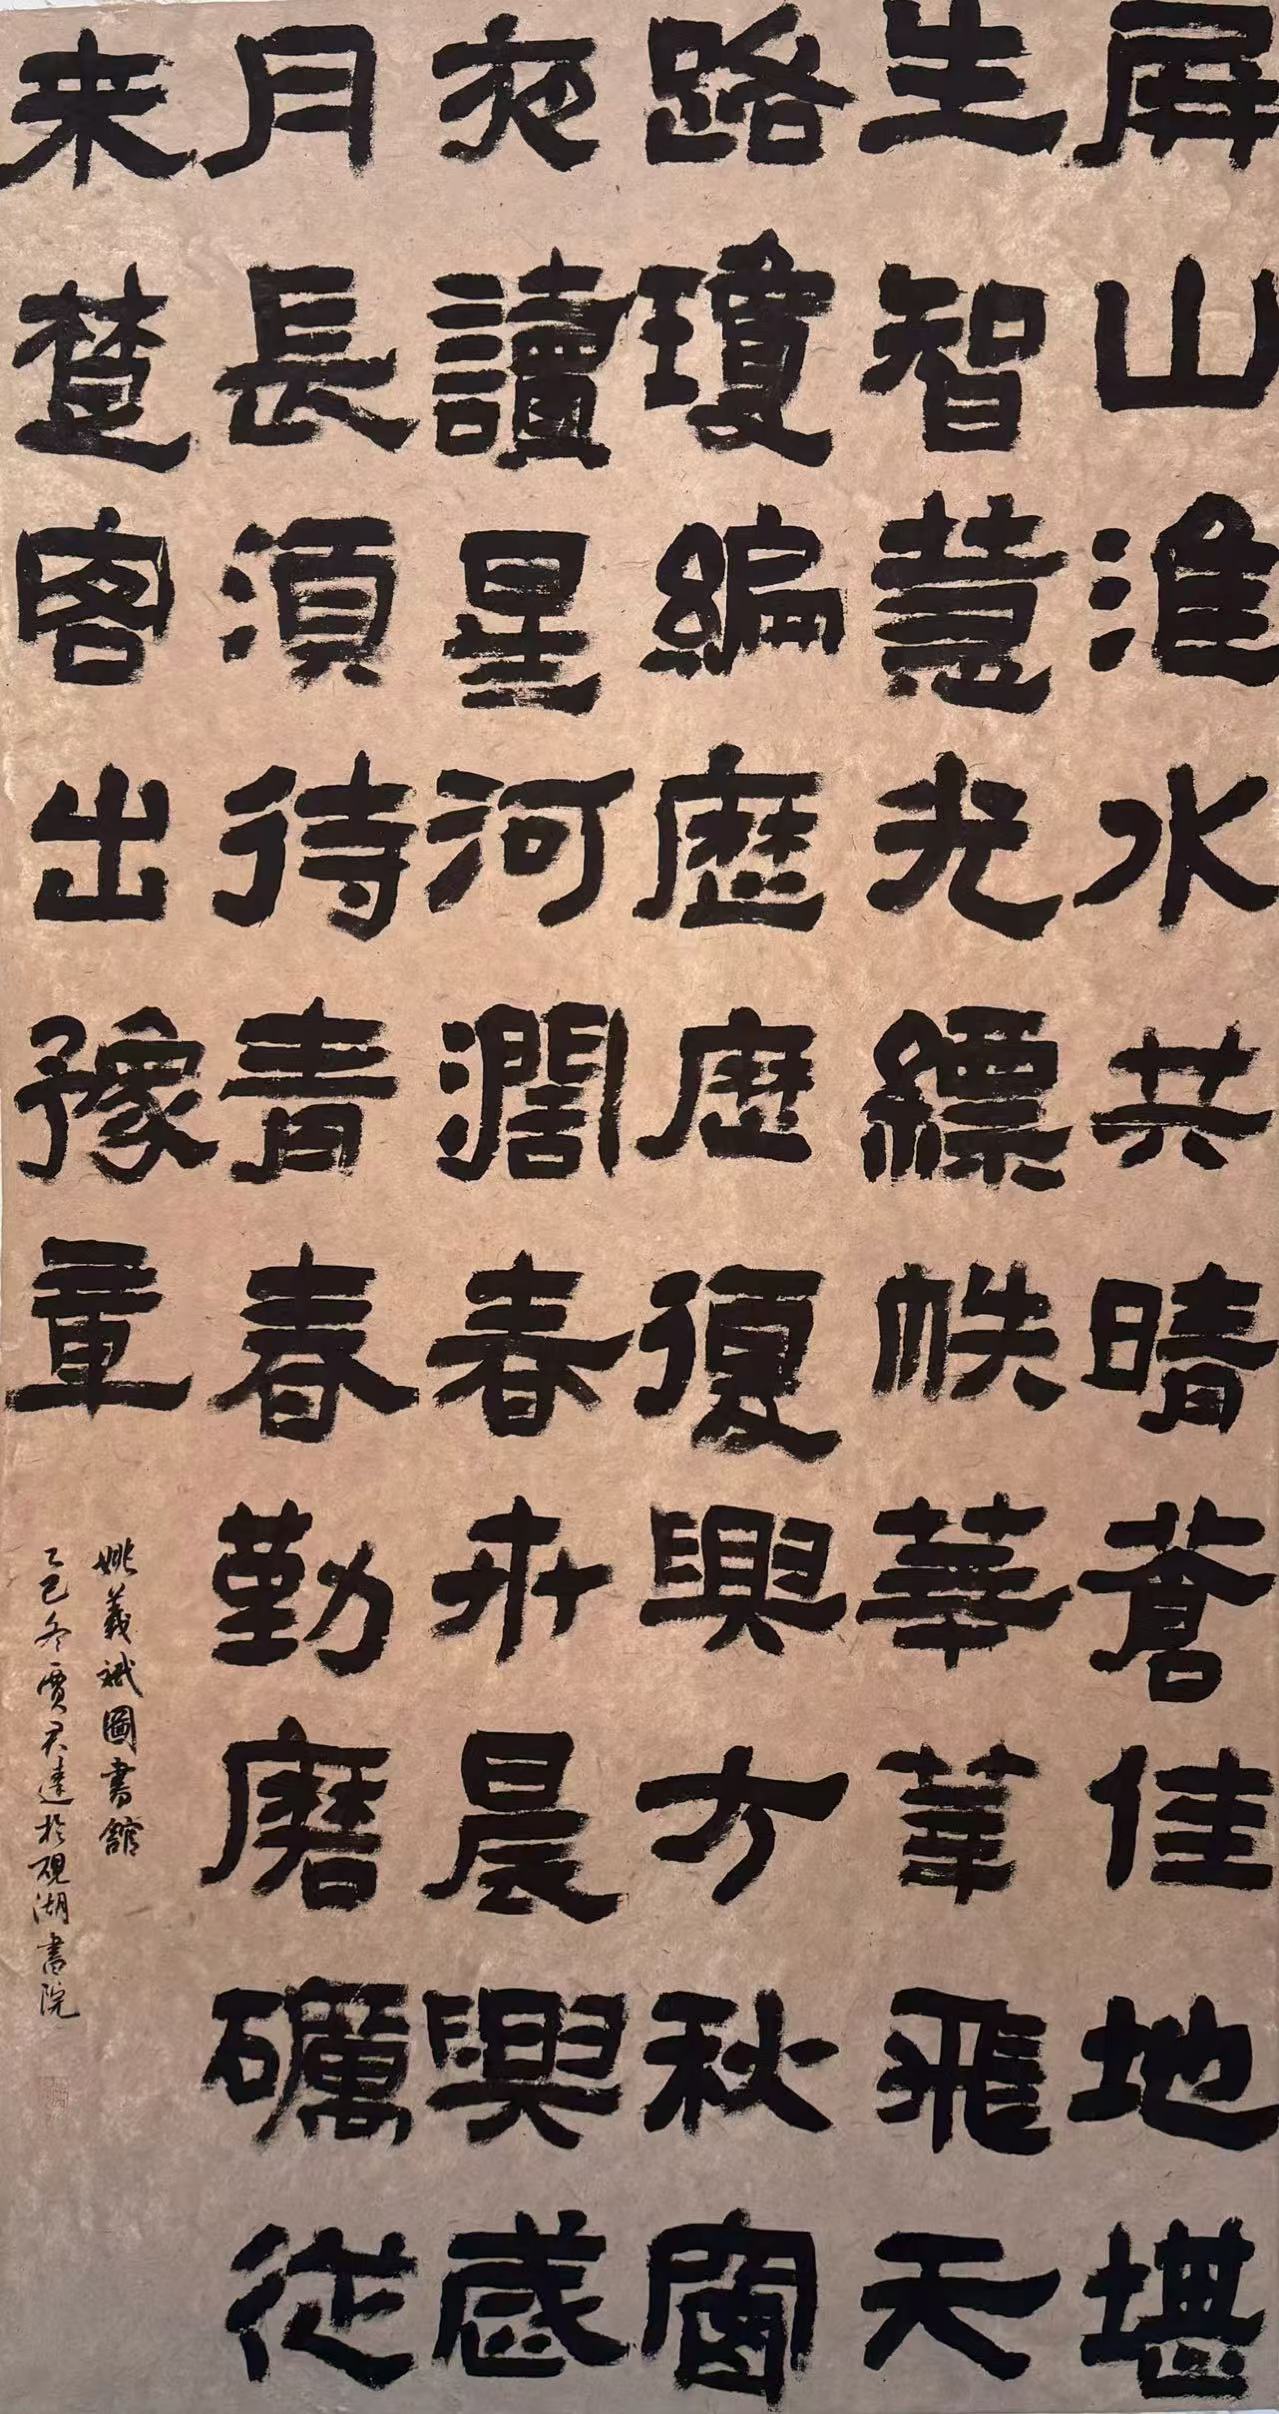 屏山淮水共晴蒼佳地堪
生智慧光縹帙華華飛天
路瓊編歷歷復興方秋窗
夜讀星河濶春卉晨興歲
月長須待青春勤磨礪從
来楚客出豫章
姚義斌圖書館
乙巳冬賈君達於硯湖書院